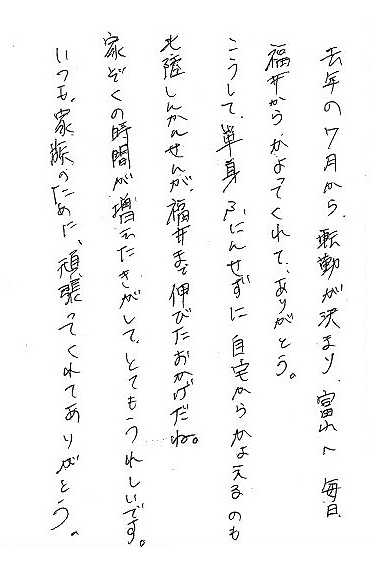 去年の7月から、転勤が決まり、富山へ毎日
福井からかよってくれて、ありがとう。
こうして、単身ふにんせずに自宅からかよえるのも
北陸しんかんせんが、福井まで伸びたおかげだね。
家ぞくの時間が増えたきがして、とてもうれしいです。
いつも、家族のために、頑張ってくれてありがとう。